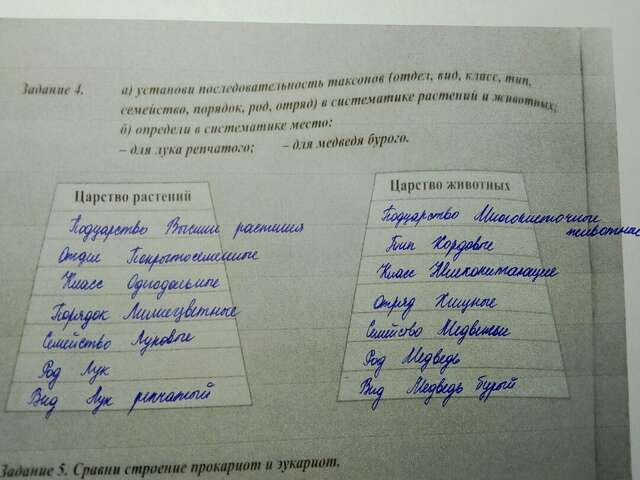 Задание 4. а) установи последовательность таксонов (отдел, вид, класс, тип,
семейство, порядок, род, отряд) в систематике растений и животных;
б) определи в систематике место:
– для лука репчатого; – для медведя бурого.
Царство растений
Подцарство Высшие растения
Отдел Покрытосеменные
Класс Однодольные
Порядок Лилиецветные
Семейство Луковые
Род Лук
Вид Лук репчатый
Царство животных
Подцарство Многоклеточные
животные
Тип Хордовые
Класс Млекопитающие
Отряд Хищные
Семейство Медвежьи
Род Медведь
Вид Медведь бурый
Задание 5. Сравни строение прокариот и эукариот.